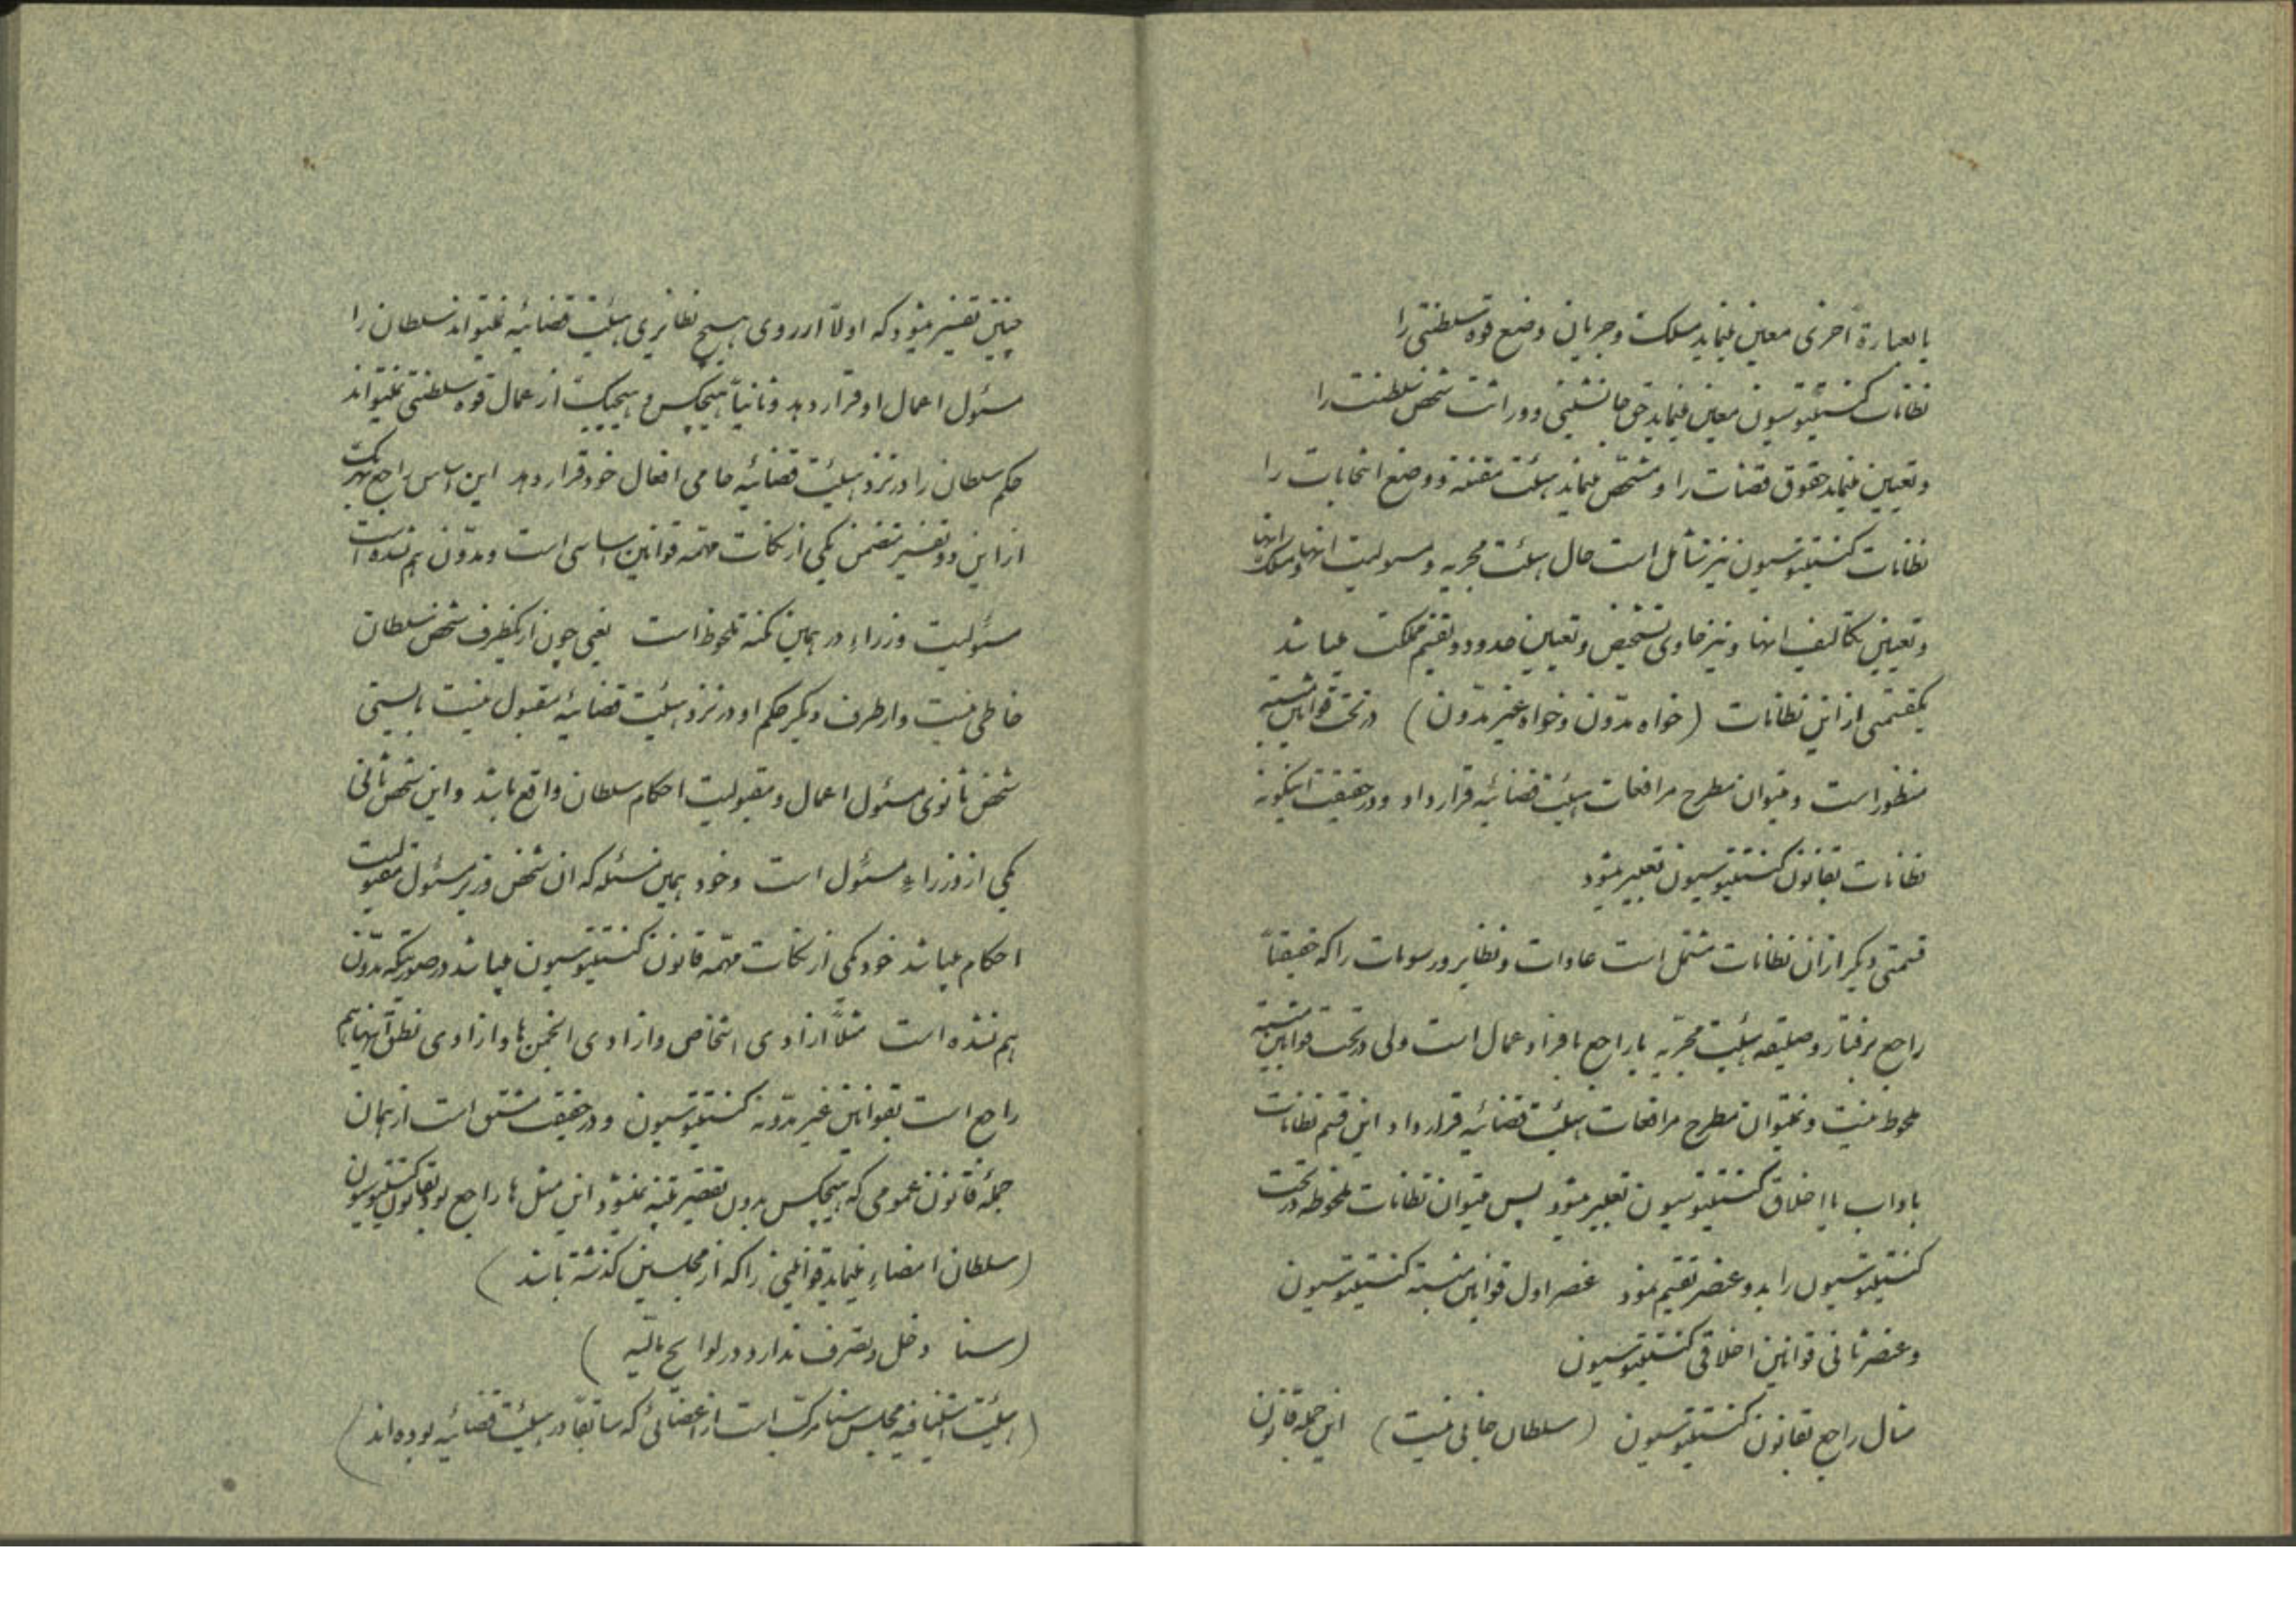 بالعبارة اخری معین مینماید مسلک و جریان وضع قوه سلطنتی را
نظامات کنستیتوسیون معین مینماید حق جانشینی و وراثت شخص سلطنت را
و تعیین مینماید حقوق قضات را و مشخص مینماید هیئت مقننه و وضع انتخابات را
نظامات کنستیتوسیون نیز شامل است حال هیئت مجریه و مسولیت انها و مسلک انها
و تعیین تکالیف انها و نیز حاوی تشخیص و تعیین حدود و تقسیم مملکت میباشد
یکقسمتی از این نظامات (خواه مدوّن و خواه غیر مدوّن) در تحت قوانین مثبته
منظور است و میتوان مطرح مرافعات هیئت قضائیه قرار داد و در حقیقت اینگونه
نظامات بقانون کنستیتوسیون تعبیر میشود
قسمتی دیگر از ان نظامات مشتمل است عادات و نظایر و رسومات را که حقیقةً
راجع برفتار و صلیقه هیئت مجریه یا راجع بافراد عمال است ولی در تحت قوانین مثبته
ملحوظ نیست و نمیتوان مطرح مرافعات هیئت قضائیه قرار داد این قسم نظامات
باداب یا اخلاق کنستیتوسیون تعبیر میشود پس میتوان نظامات ملحوظه در تحت
کنستیتوسیون را بدو عنصر تقسیم نمود عنصر اول قوانین مثبته کنستیتوسیون
و عنصر ثانی قوانین اخلاقی کنستیتوسیون
مثال راجع بقانون کنستیتوسیون (سلطان جانی نیست) این جمله قانون
چنین تفسیر میشود که اولاً از روی هیچ نظایری هیئت قضائیه نمیتواند سلطان را
مسئول اعمال او قرار دهد و ثانیاً هیچکس و هیچیک از عمال قوه سلطنتی نمیتواند
حکم سلطان را در نزد هیئت قضائیه حامی افعال خود قرار دهد این اساس راجع بهریک
از این دو تفسیر متضمن یکی از نکات مهمه قوانین اساسی است و مدوّن هم نشده است
مسئولیت وزراء در همین نکته ملحوظ است یعنی چون از یکطرف شخص سلطان
خاطی نیست و از طرف دیگر حکم او در نزد هیئت قضائیه مقبول نیست بایستی
شخص ثانوی مسئول اعمال و مقبولیت احکام سلطان واقع باشد و این شخص ثانی
یکی از وزراء مسئول است و خود همین مسئله که ان شخص وزیر مسئول مقبولیت
احکام میباشد خود یکی از نکات مهمه قانون کنستیتوسیون میباشد در صورتیکه مدوّن
هم نشده است مثلاً ازادی اشخاص و ازادی انجمن‌ها و ازادی نطق اینها هم
راجع است بقوانین غیر مدوّنه کنستیتوسیون و در حقیقت مشتق است از همان
جمله قانون عمومی که هیچکس بدون تقصیر تنبیه نمیشود این مثل‌ها راجع بود بقانون کنستیتوسیون
(سلطان امضاء مینماید قوانینی را که از مجلسین گذشته باشد)
(سنا دخل و تصرف ندارد در لوایح مالیه)
(هیئت استینافیه مجلس سنا مرکب است از اعضائی که سابقاً در هیئت قضائیه بوده‌اند)